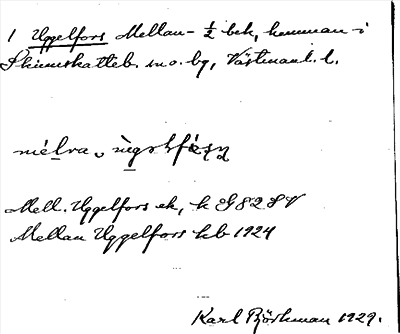 1 Uggelfors Mellan- ½ bek, hemman i
Skinnskatteb. in o. by, Västmanl. l.
Mell. Uggelfors ek, k G82SV
Mellan Uggelfors kb 1924
Karl Björkman 1929.